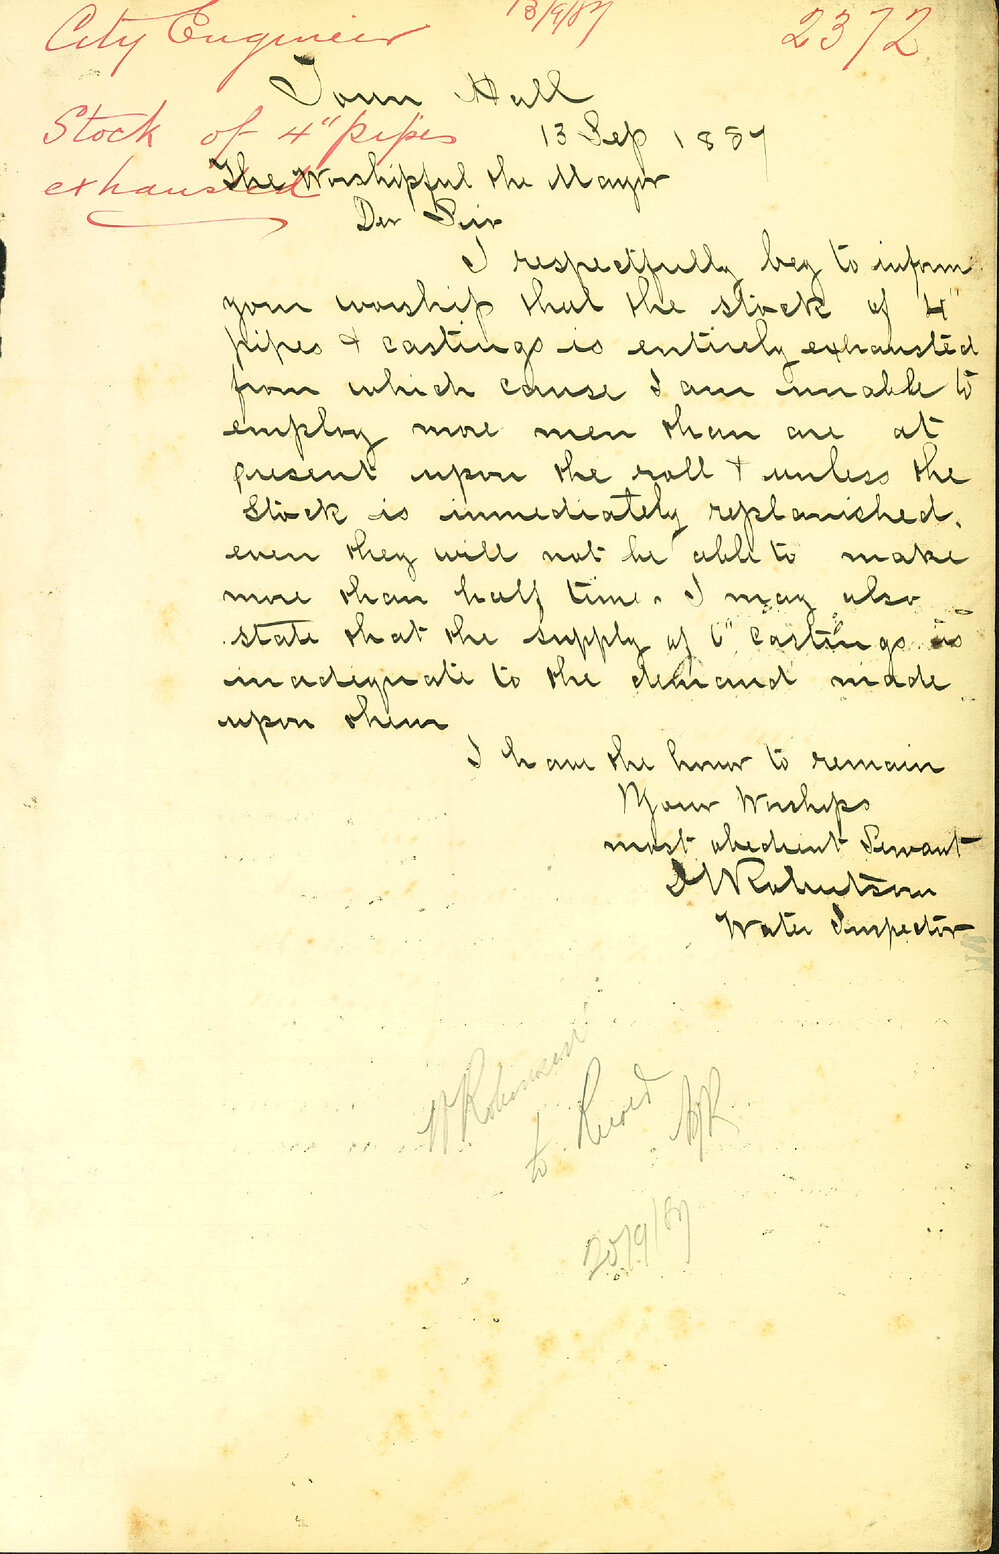 City Engineer 13/9/87 2372
Town Hall
Stock of 4" pipes
13 Sep 1887
exhausted
The Worshipful the Mayor
Der Sir
I respectfully beg to inform
your worship that the stock of 4"
pipes + castings is entirely exhausted
from which cause I am unable to
employ more men than are at
present upon the roll + unless the
Stock is immediately replanished.
even they will not be able to make
more than half time. I may also
state that the supply of 6" castings is
inadequate to the demand made
upon them
I have the honor to remain
Your Worships
most obedient Servant
Robertson
Water Inspector
to Record
20/9/87